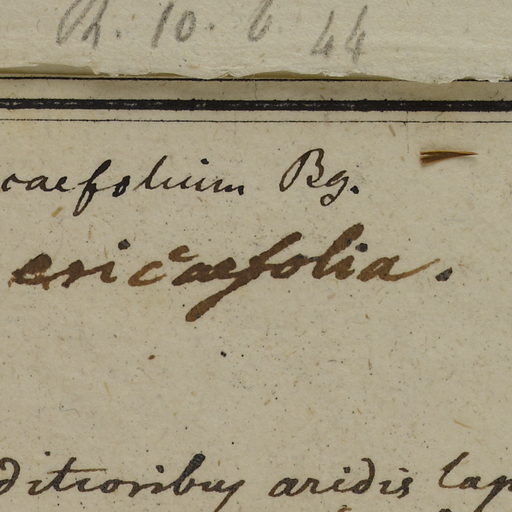 Ph. 10. 6 44
caefolium Bg.
ericaefolia.
ditioribus aridis lap